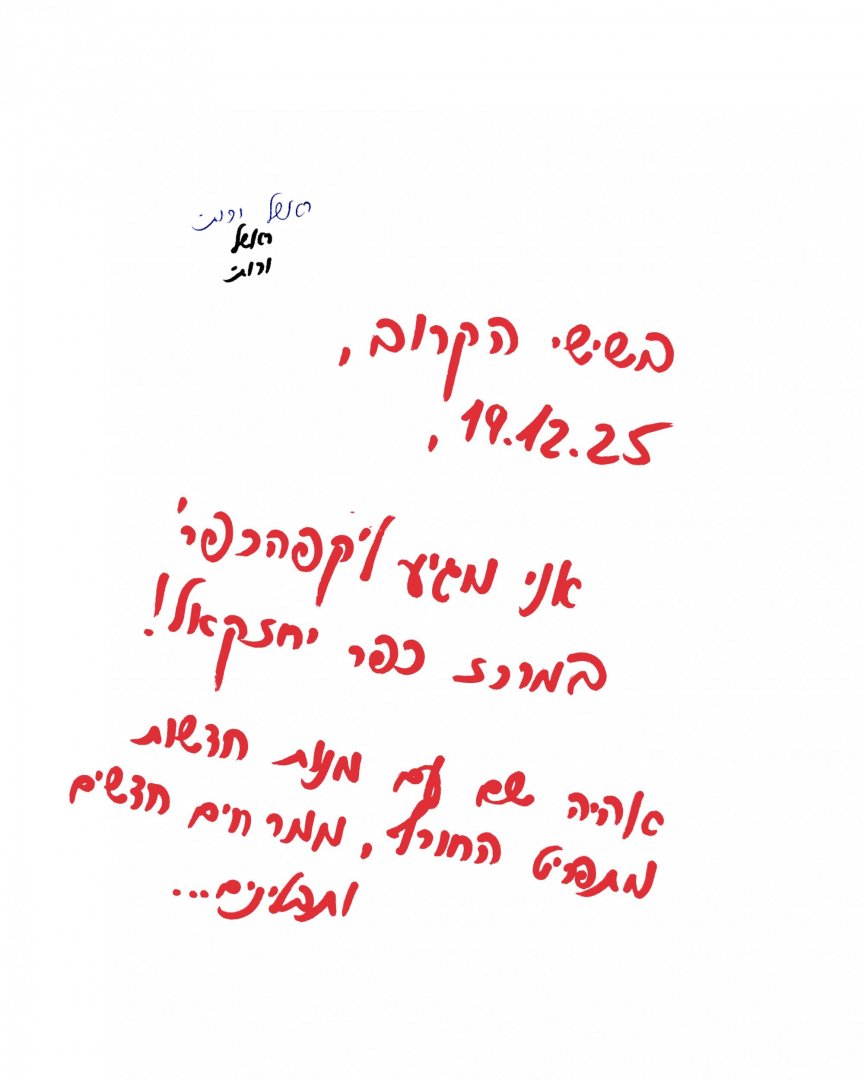 ורותי
ורותי
בשישי הקרוב,
19.12.25,
אני מגיע ל'קפהכפר'
במרכז כפר יחזקאל!
אהיה שם עם מנות חדשות
מתפריט החורף, ממרחים חדשים
ותבלינים...